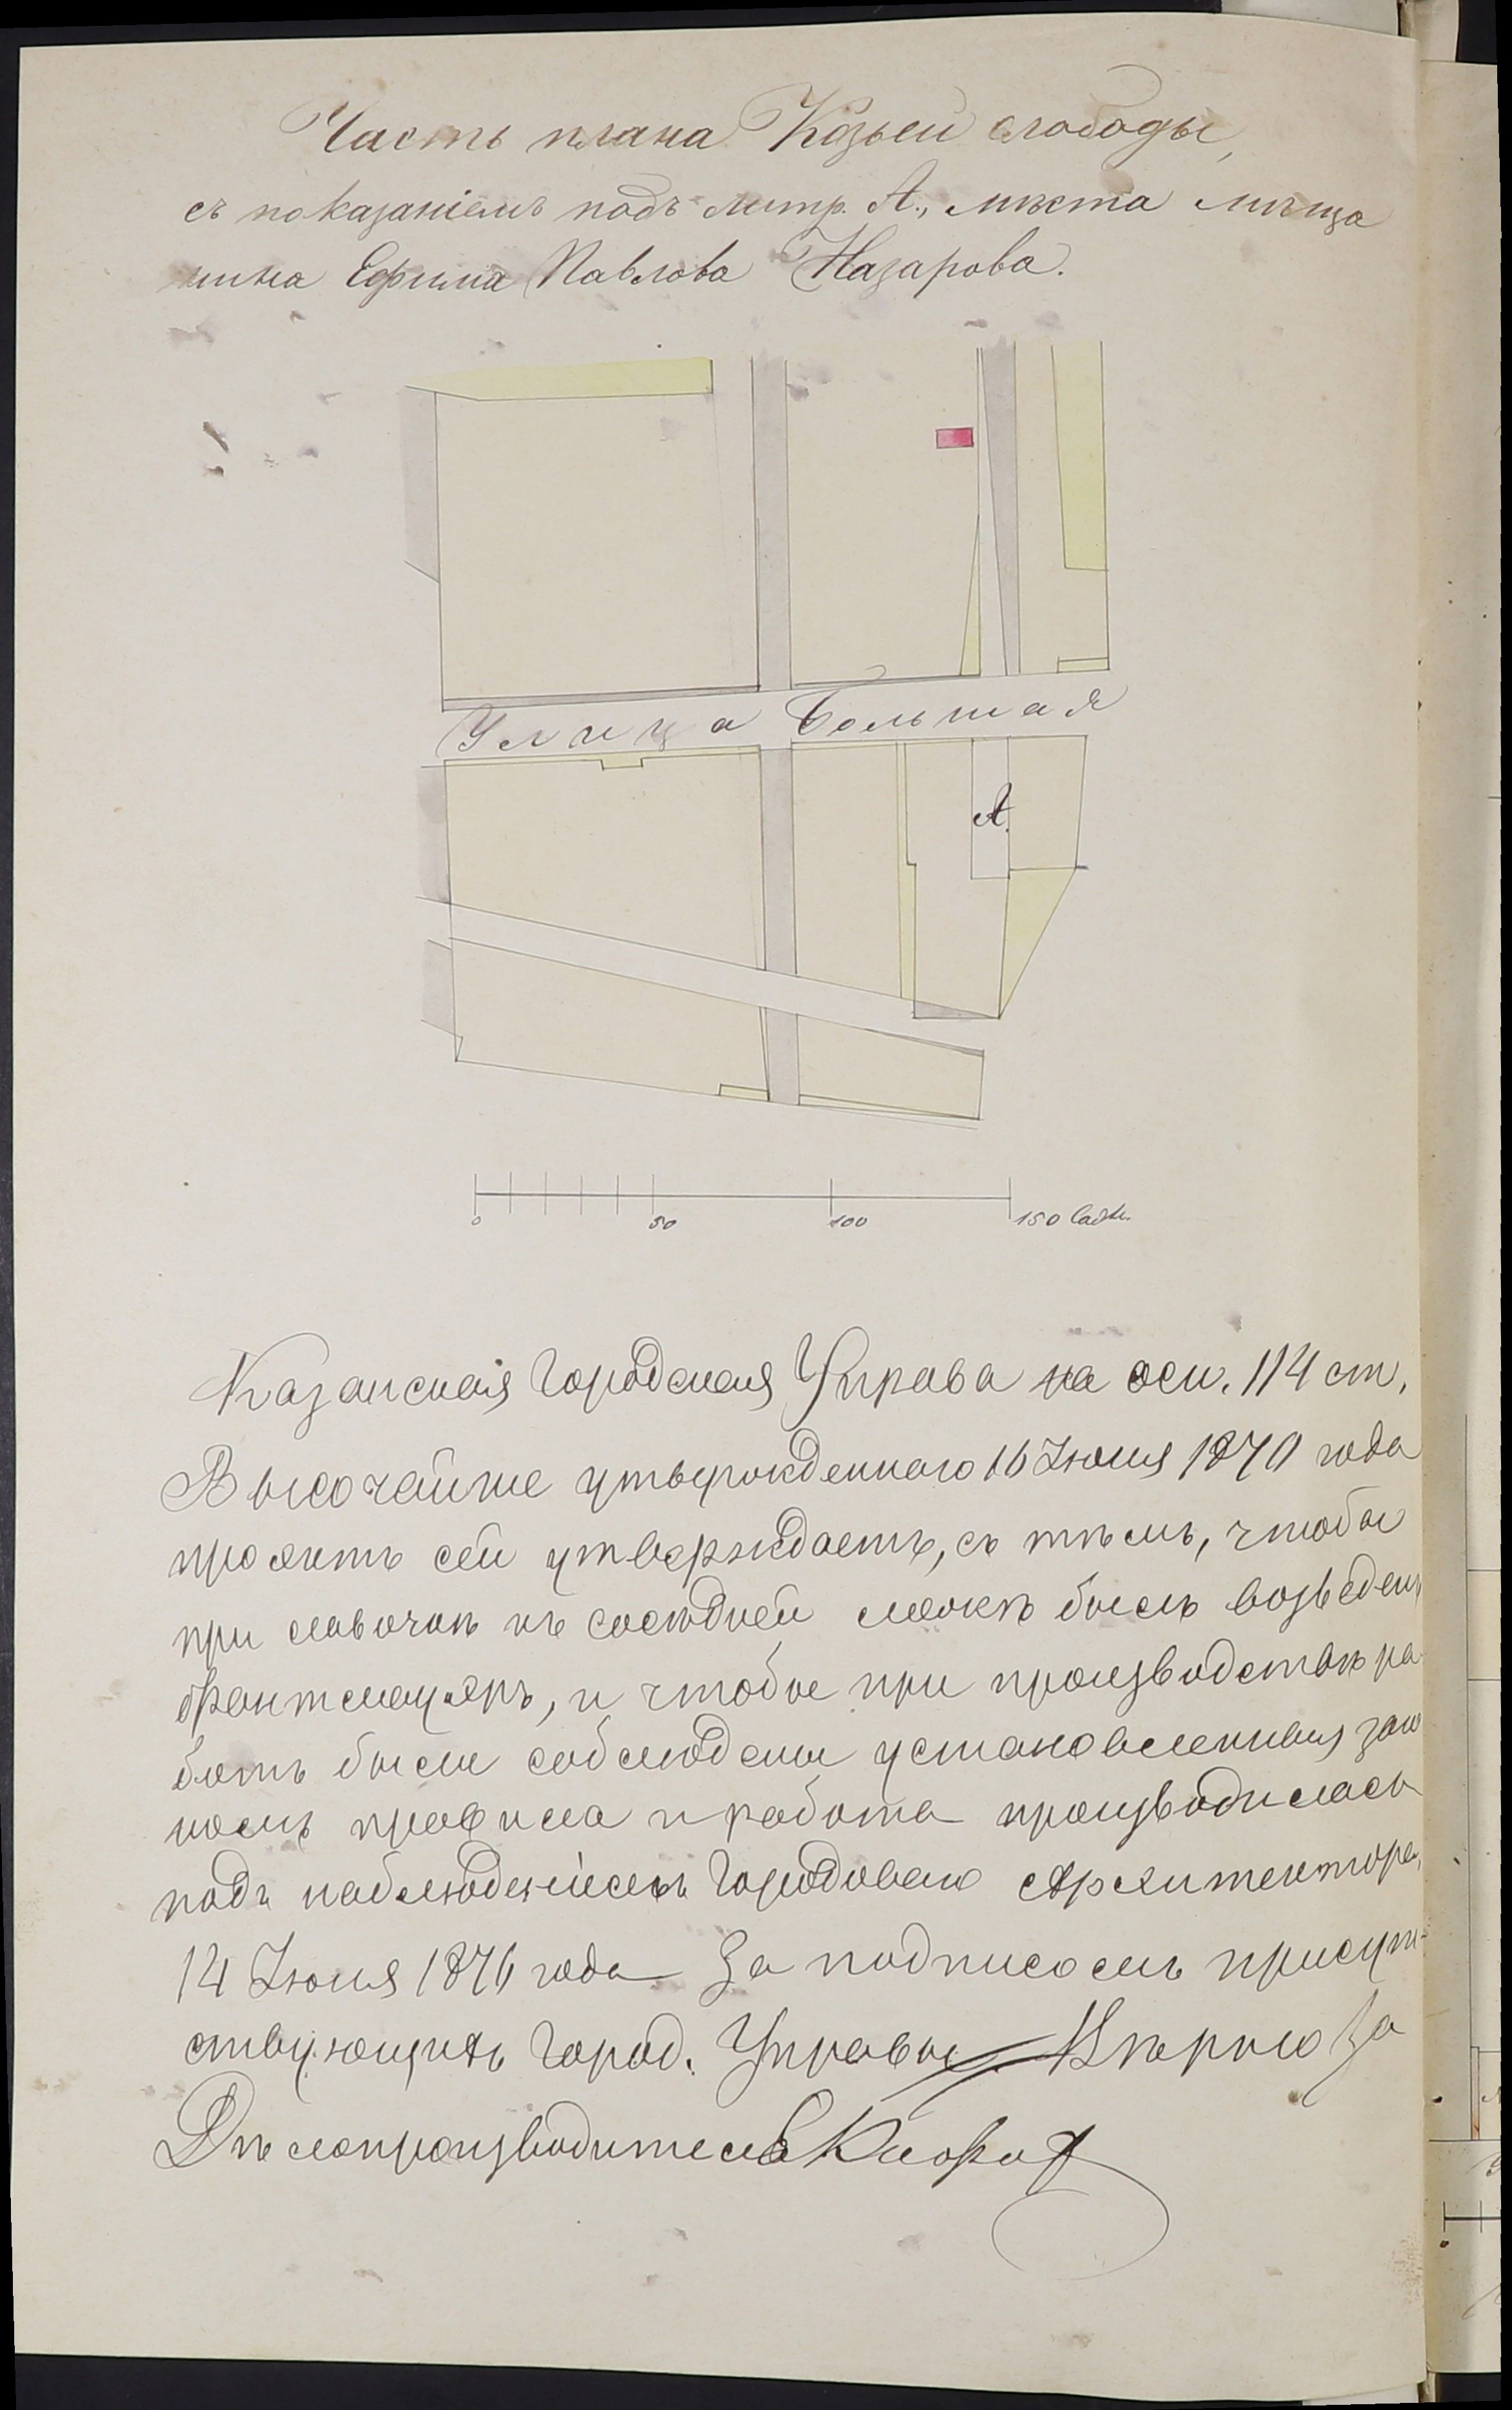 Часть плана Козьей слободы,
съ показаніемъ подъ литр. А., мѣста мѣща
нина Ефима Павлова Назарова.
Улица Большая
А.
0 50 100 150 саж.
Казанская Городская Управа на осн. 114 ст.
Высочайше утвержденнаго 16 Июня 1870 года
проэктъ сей утверждаетъ, съ тѣмъ, чтобы
при лавочкѣ къ сосѣдней межѣ былъ возведенъ
брантмауеръ, и чтобы при производствѣ ра-
ботъ были соблюдены установленныя зако
номъ правила и работа производилась
подъ наблюденіемъ Городоваго Архитектора,
14 Июня 1876 года За подписомъ присут-
ствующихъ Город. Управы. Вѣрно За
Дѣлопроизводителя